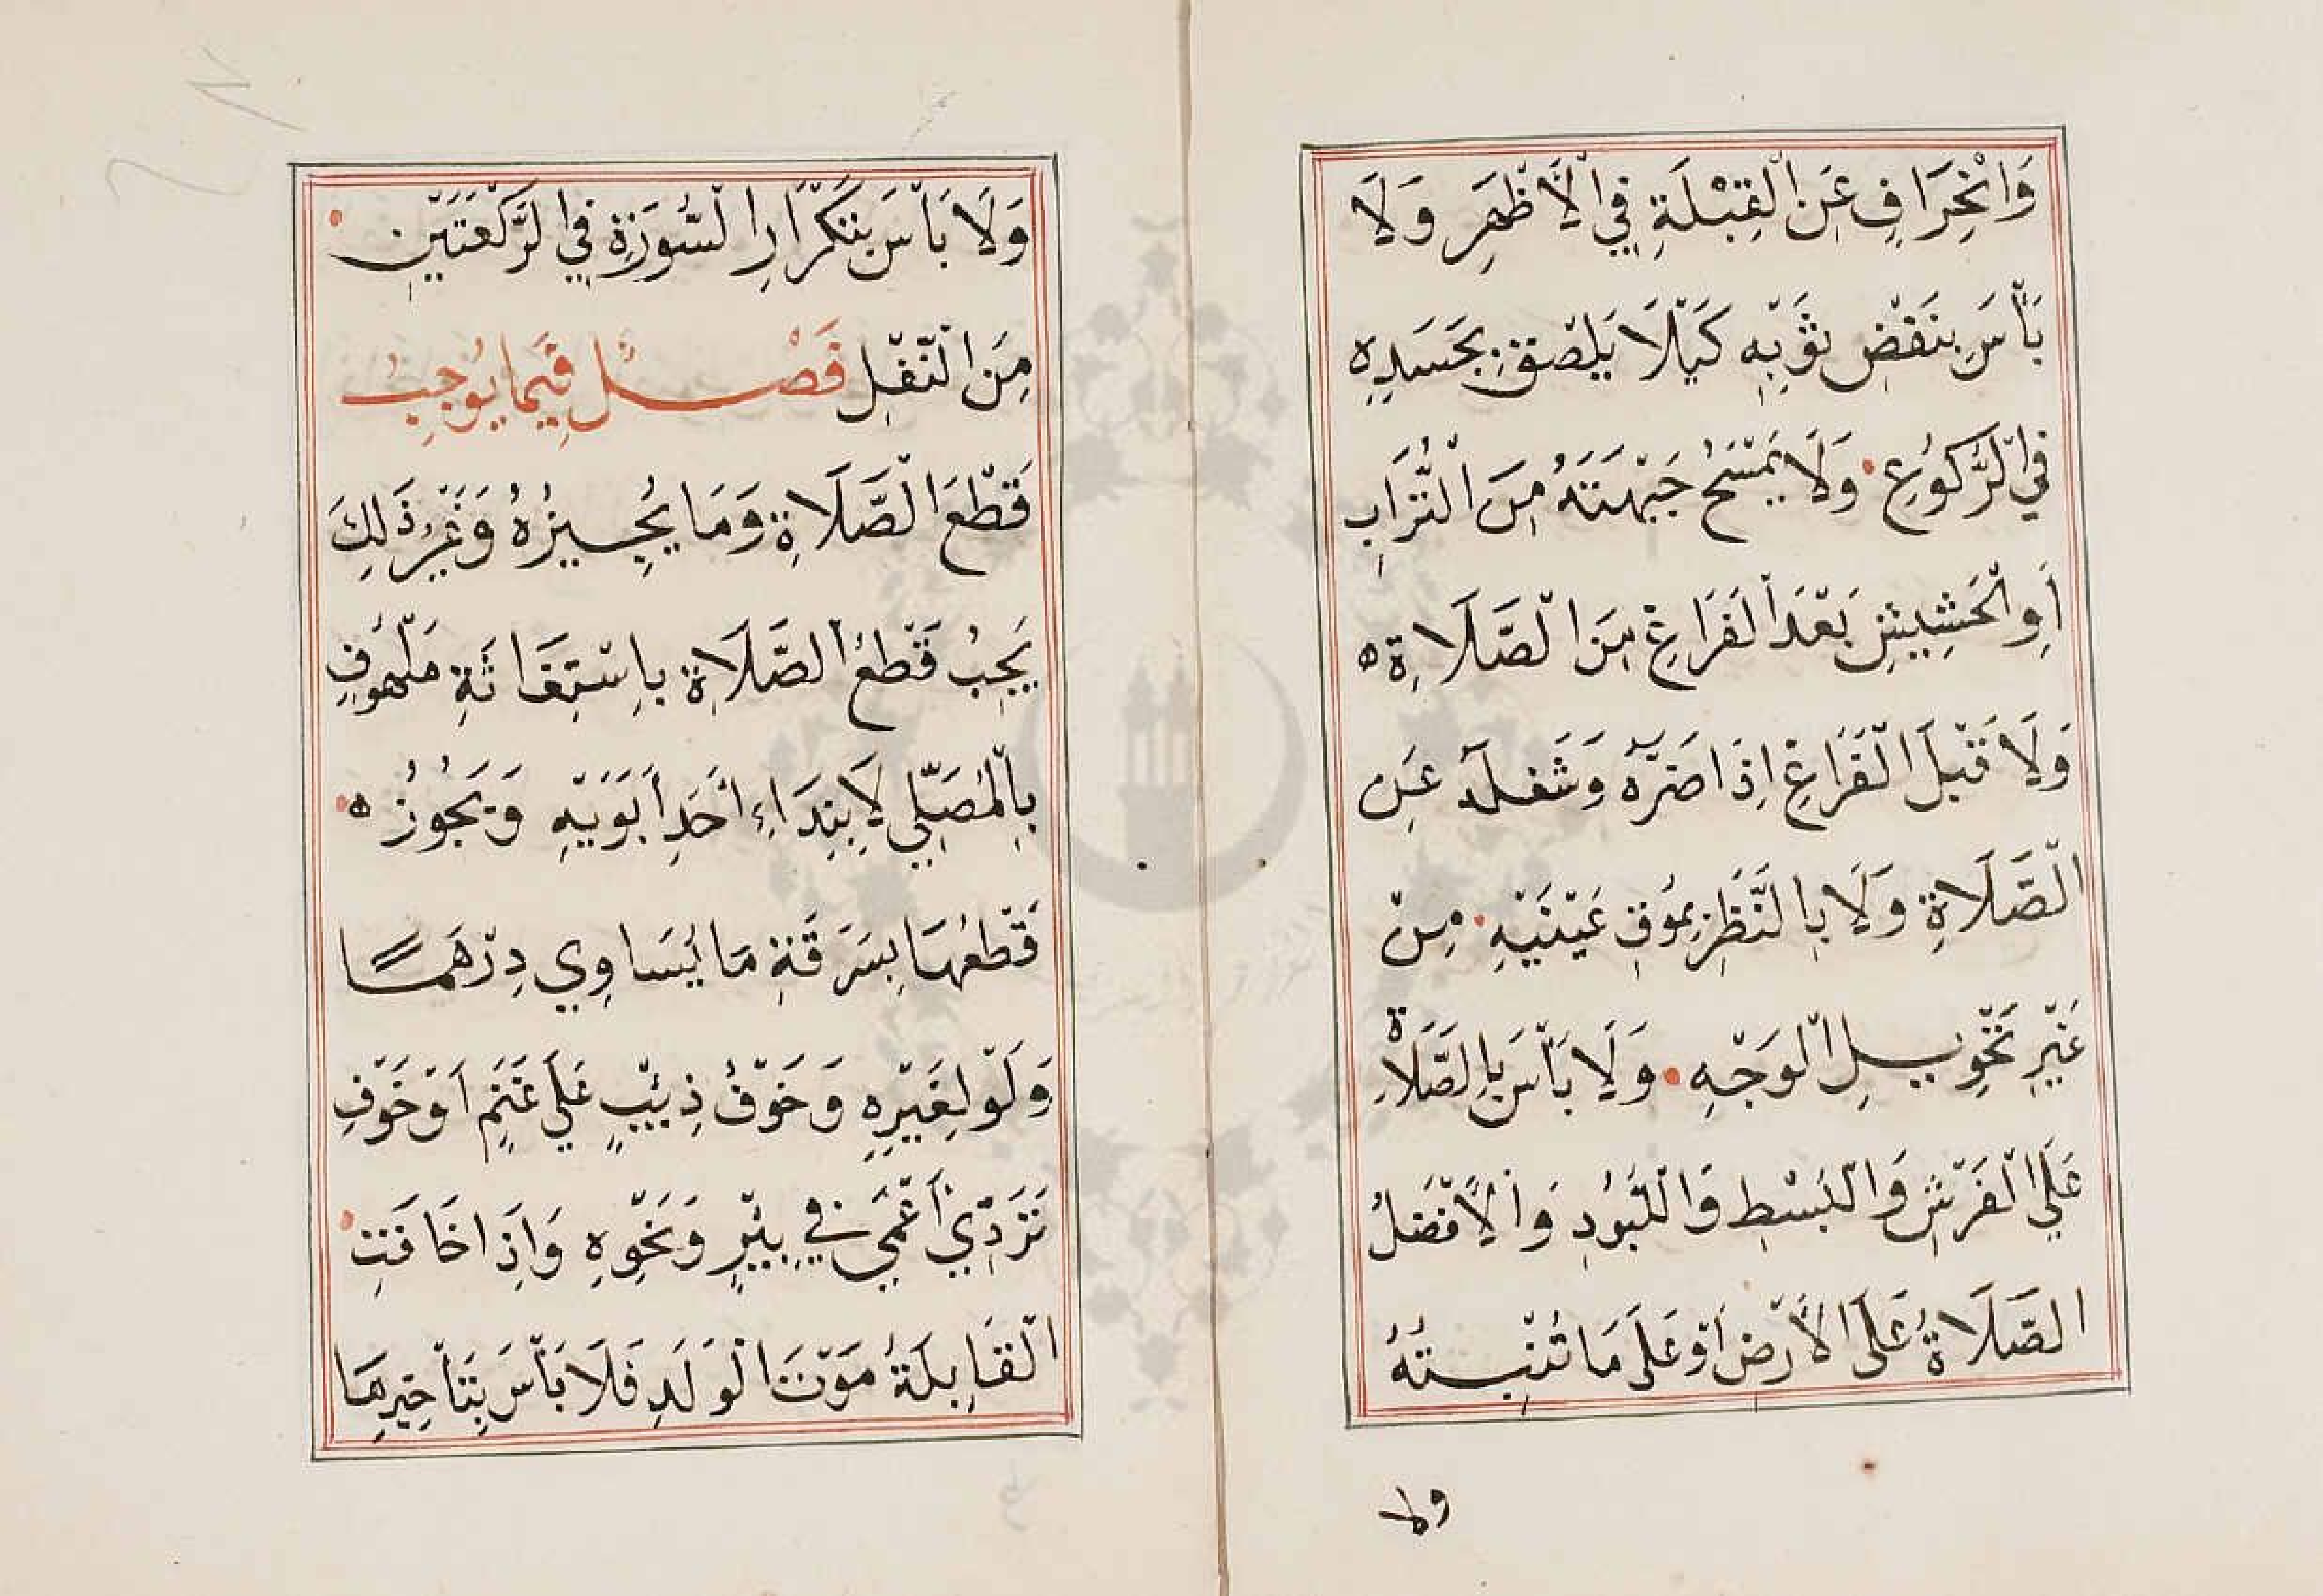 وَانْحِرَافٍ عَنِ الْقِبْلَةِ فِي الْأَظْهَرِ وَلَا
بَأْسَ بِنَفْضِ ثَوْبِهِ كَيْلَا يَلْصَقَ بِجَسَدِهِ
فِي الرُّكُوعِ وَلَا يَمْسَحُ جَبْهَتَهُ مِنَ التُّرَابِ
أَوِ الْحَشِيشِ بَعْدَ الْفَرَاغِ مِنَ الصَّلَاةِ ه
وَلَا قَبْلَ الْفَرَاغِ اِذَا ضَرَّهُ وَشَغَلَهُ عَنِ
الصَّلَاةِ وَلَا بِالنَّظَرِ بِمُوقِ عَيْنَيْهِ مِنْ
غَيْرِ تَحْوِيلِ الْوَجْهِ وَلَا بَأْسَ بِالصَّلَاةِ
عَلَى الْفَرْشِ وَالْبُسْطِ وَاللُّبُودِ وَالْأَفْضَلُ
الصَّلَاةُ عَلَى الْأَرْضِ أَوْ عَلَى مَا تُنْبِتُهُ
ولا
وَلَا بَأْسَ بِتَكْرَارِ السُّورَةِ فِي الرَّكْعَتَيْنِ
مِنَ النَّفْلِ فَصْلٌ فِيمَا يُوجِبُ
قَطْعَ الصَّلَاةِ وَمَا يُجِيزُهُ وَغَيْرُ ذَلِكَ
يَجِبُ قَطْعُ الصَّلَاةِ بِاِسْتِغَاثَةِ مَلْهُوفٍ
بِالْمُصَلِّي لَا بِنِدَاءِ أَحَدِ أَبَوَيْهِ وَيَجُوزُ ه
قَطْعُهَا بِسَرَقَةِ مَا يُسَاوِي دِرْهَمًا
وَلَوْ لِغَيْرِهِ وَخَوْفُ ذِئْبٍ عَلَى غَنَمٍ اَوْ خَوْفِ
تَرَدِّي أَعْمَى فِي بِئْرٍ وَنَحْوِهِ وَاِذَا خَافَتِ
الْقَابِلَةُ مَوْتَ الْوَلَدِ فَلَا بَأْسَ بِتَأْخِيرِهَا